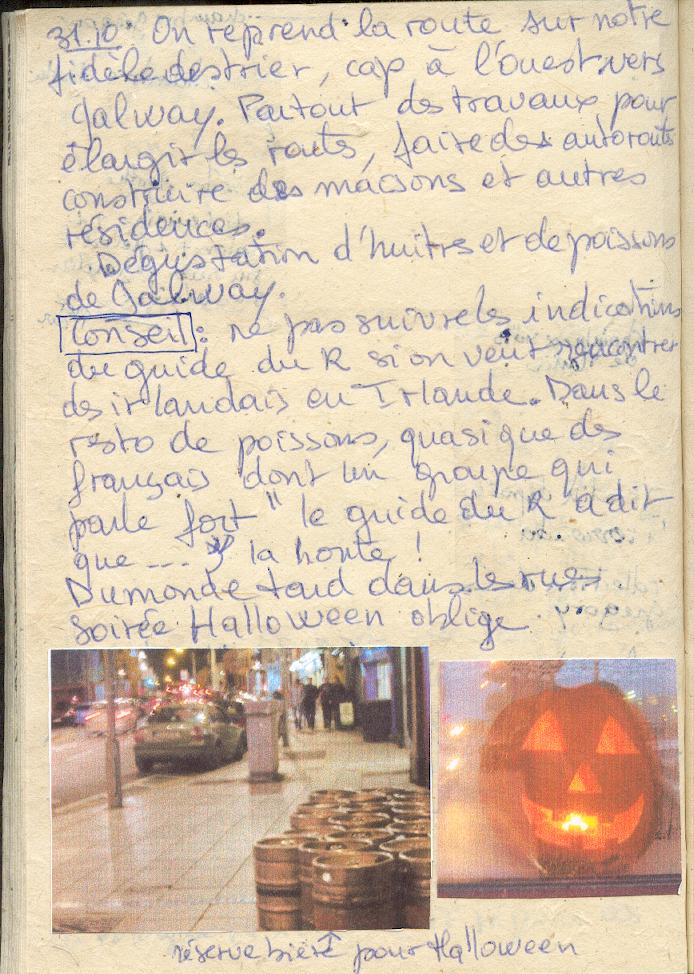 31.10. On reprend la route sur notre
fidèle destrier, cap à l'ouest vers
Galway. Partout des travaux pour
élargir les routes, faire des autoroutes
construire des maisons et autres
résidences.
Dégustation d'huitres et de poissons
de Galway.
Conseil : ne pas suivre les indications
du guide du R si on veut rencontrer
des irlandais en Irlande. Dans le
resto de poissons, quasi que des
français dont un groupe qui
parle fort " le guide du R a dit
que ... " la honte !
Du monde tard dans les rues
Soirée Halloween oblige
réserve bière ↑ pour Halloween